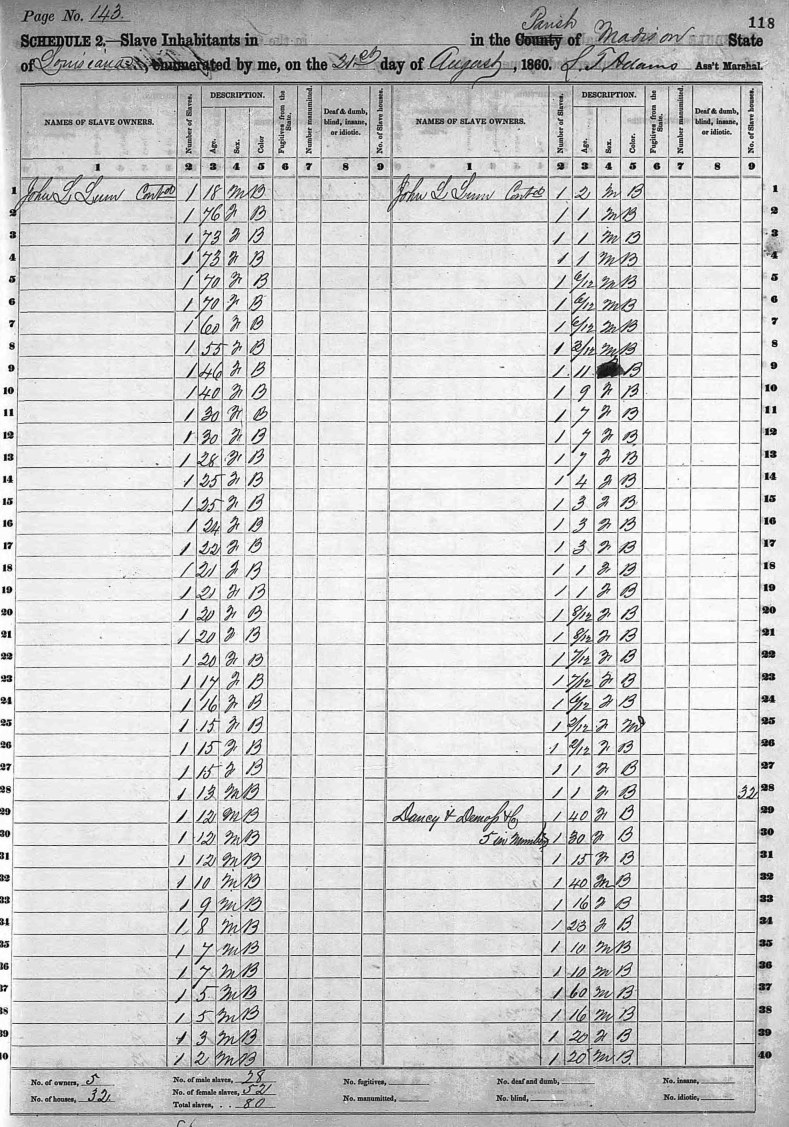 Page No. 143.
118
SCHEDULE 2.—Slave Inhabitants in in the County of Madison State
Parish
of Louisiana, enumerated by me, on the 21st day of August, 1860. L. F. Adams Ass't Marshal.
NAMES OF SLAVE OWNERS. Number of Slaves. DESCRIPTION. Age. Sex. Color. Fugitives from the State. Number manumitted. Deaf & dumb, blind, insane, or idiotic. No. of Slave houses. NAMES OF SLAVE OWNERS. Number of Slaves. DESCRIPTION. Age. Sex. Color. Fugitives from the State. Number manumitted. Deaf & dumb, blind, insane, or idiotic. No. of Slave houses.
1 2 3 4 5 6 7 8 9 1 2 3 4 5 6 7 8 9
1 John L 1 18 M B John L 1 2 M B 1
2 1 76 F B 1 1 M B 2
3 1 73 F B 1 1 M B 3
4 1 73 F B 1 1 M B 4
5 1 70 F B 1 6/12 M B 5
6 1 70 F B 1 6/12 M B 6
7 1 60 F B 1 6/12 M B 7
8 1 55 F B 1 3/12 M B 8
9 1 46 F B 1 11 B 9
10 1 40 F B 1 9 F B 10
11 1 30 F B 1 7 F B 11
12 1 30 F B 1 7 F B 12
13 1 28 F B 1 7 F B 13
14 1 25 F B 1 4 F B 14
15 1 25 F B 1 3 F B 15
16 1 24 F B 1 3 F B 16
17 1 22 F B 1 3 F B 17
18 1 21 F B 1 1 F B 18
19 1 21 F B 1 1 F B 19
20 1 20 F B 1 8/12 F B 20
21 1 20 F B 1 8/12 F B 21
22 1 20 F B 1 7/12 F B 22
23 1 17 F B 1 7/12 F B 23
24 1 16 F B 1 6/12 F B 24
25 1 15 F B 1 2/12 F M 25
26 1 15 F B 1 2/12 F B 26
27 1 15 F B 1 1 F B 27
28 1 13 M B 1 1 F B 32 28
29 1 12 M B Dancy & Demoss & Co 1 40 F B 29
30 1 12 M B 5 in Number 1 30 F B 30
31 1 12 M B 1 15 F B 31
32 1 10 M B 1 40 M B 32
33 1 9 M B 1 16 F B 33
34 1 8 M B 1 23 F B 34
35 1 7 M B 1 10 M B 35
36 1 7 M B 1 10 M B 36
37 1 5 M B 1 60 M B 37
38 1 5 M B 1 16 M B 38
39 1 3 M B 1 20 F B 39
40 1 2 M B 1 20 M B 40
No. of owners, 5 No. of male slaves, 28 No. fugitives, No. deaf and dumb, No. insane,
No. of houses, 32 No. of female slaves, 52 No. manumitted, No. blind, No. idiotic,
Total slaves, 80